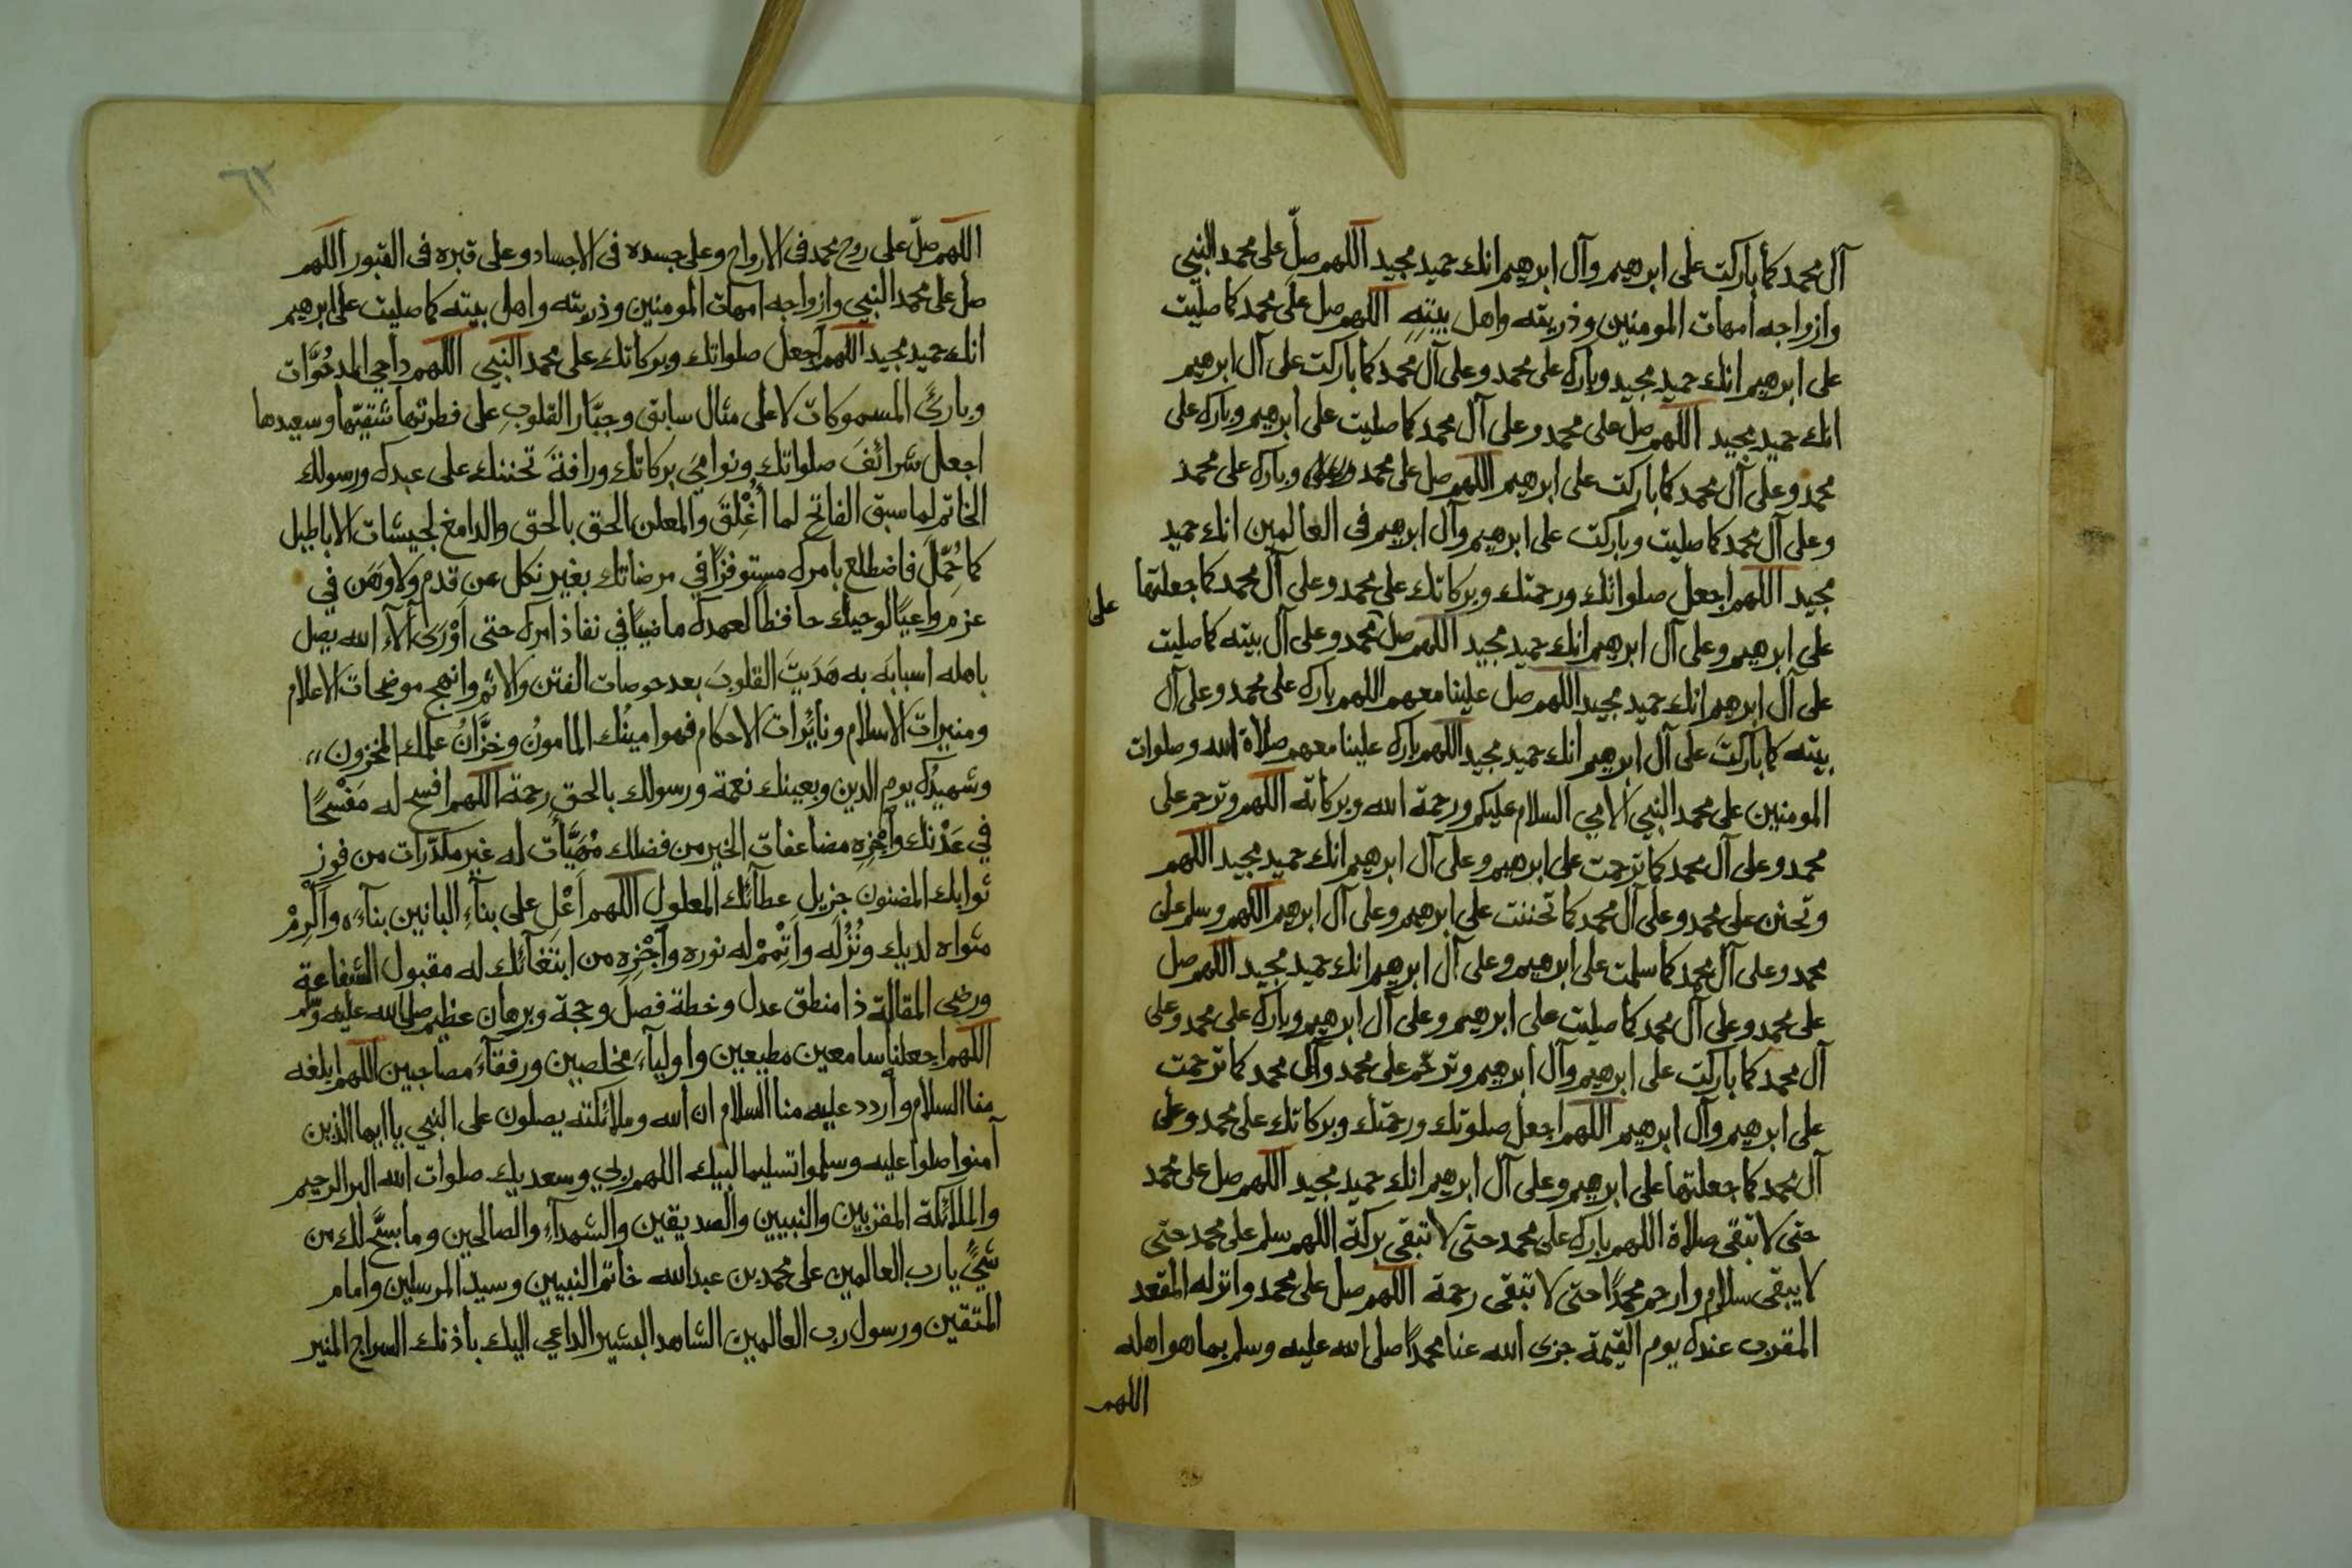 آل محمد كما باركت على ابرهيم وآل ابرهيم انك حميد مجيد اللهم صلِّ على محمد النبي
وازواجه امهات المومنين وذريته واهل بيتِهِ اللهم صل على محمد كما صليت
على ابرهيم انك حميد مجيد وبارك على محمد وعلى آل محمد كما باركت على آل ابرهيم
انك حميد مجيد اللهم صل على محمد وعلى آل محمد كما صليت على ابرهيم وبارك على
محمد وعلى آل محمد كما باركت على ابرهيم اللهم صل على محمد وبارك على محمد
وعلى آل محمد كما صليت وباركت على ابرهيم وآل ابرهيم فى العالمين انك حميد
مجيد اللهم اجعل صلواتك ورحمتك وبركاتك على محمد وعلى آل محمد كما جعلتها
على ابرهيم وعلى آل ابرهيم انك حميد مجيد اللهم صل محمد وعلى آل بيته كما صليت
على
على آل ابرهيم انك حميد مجيد اللهم صل علينا معهم اللهم بارك على محمد وعلى آل
بيته كما باركت على آل ابرهيم انك حميد مجيد اللهم بارك علينا معهم صلاة الله وصلوات
المومنين على محمد النبي الامي السلام عليكم ورحمة الله وبركاته اللهم وترحم على
محمد وعلى آل محمد كما ترحمت على ابرهيم وعلى آل ابرهيم انك حميد مجيد اللهم
وتحنن على محمد وعلى آل محمد كما تحننت على ابرهيم وعلى آل ابرهيم اللهم وسلم على
محمد وعلى آل محمد كما سلمت على ابرهيم وعلى آل ابرهيم انك حميد مجيد اللهم صل
على محمد وعلى آل محمد كما صليت على ابرهيم وعلى آل ابرهيم وبارك على محمد وعلى
آل محمد كما باركت على ابرهيم وآل ابرهيم وترحم على محمد وآل محمد كما ترحمت
على ابرهيم وآل ابرهيم اللهم اجعل صلوتك ورحمتك وبركاتك على محمد وعلى
آل محمد كما جعلتها على ابرهيم وعلى آل ابرهيم انك حميد مجيد اللهم صل على محمد
حتى لا تبقى صلاة اللهم بارك على محمد حتى لا تبقى بركة اللهم سلم على محمد حتى
لا يبقى سلام وارحم محمدًا حتى لا تبقى رحمة اللهم صل على محمد وانزله المقعد
المقرب عندك يوم القيمة جزى الله عنا محمدًا صلى الله عليه وسلم بما هو اهله
اللهم
٦٢
اللهم صلّ على روح محمد فى الارواح وعلى جسده فى الاجساد وعلى قبره فى القبور اللهم
صل على محمد النبي وازواجه امهات المومنين وذريته واهل بيته كما صليت على ابرهيم
انك حميد مجيد اللهم اجعل صلواتك وبركاتك على محمد النبي اللهم داحي المدحُوَّات
وبارئَ المسموكات لا على مثال سابق وجبّار القلوبِ على فطرتها شقيّها وسعيدها
اجعل شرائفَ صلواتك ونوامِيَ بركاتك ورافةَ تحننك على عبدك ورسولك
الخاتم لما سبق الفاتح لما أُغْلِقَ والمعلن الحق بالحق والدامغ لجيشات الاباطيل
كما حُمِّلَ فاضطلع بامرك مستوفزًا في مرضاتك بغير نكل عن قدم ولا وَهَن في
عزم واعيًا لوحيك حافظًا لعهدك ماضيًا في نفاذ امرك حتى أوْرَىَ آلآءِ الله يصل
باهله اسبابَه به هَدَيتَ القلوبَ بعد خوصات الفتن والاثم وانهج موضحات الاعلام
ومنيرات الاسلام ونايُرات الاحكام فهو امينُك المامونُ وخزَّانُ علمك المخزون
وشهيدُك يوم الدين وبعينك نعمة ورسولك بالحقِ رحمة اللهم افسح له مَفْسَحًا
في عَدْنك وَاجْزِهِ مضاعفات الخير من فضلك مُهَيَّأت له غير مكدَّرات من فوز
ثوابك المضنون جزيل عطآئك المعلول اللهم أَعْلِ على بنآءِ البانين بنآءَه وأكْرِمْ
مثواه لديك ونُزُلَه واَتْمِمْ له نوره وأجْزِهِ من ابتغآئك له مقبول الشفاعة
ورضى المقالة ذا منطق عدل وخطة فصل وحجة وبرهان عظيم صلى الله عليه وسلم
اللهم اجعلنا سامعين مطيعين واوليآءَ مخلصين ورفقآءَ مصاحبين اللهم ابلغه
منا السلام وأردد عليه منا السلام ان الله وملائكته يصلون على النبي يا ايها الذين
آمنوا صلوا عليه وسلموا تسليما لبيك اللهم ربي وسعديك صلوات الله البر الرحيم
والملائكة المقربين والنبيين والصديقين والشهدآءِ والصالحين وما سبَّح لك من
شيءٍ يا رب العالمين على محمد بن عبدالله خاتم النبيين وسيد المرسلين وامام
المتقين ورسول رب العالمين الشاهد البشير الداعي اليك بأذنك السراج المنير